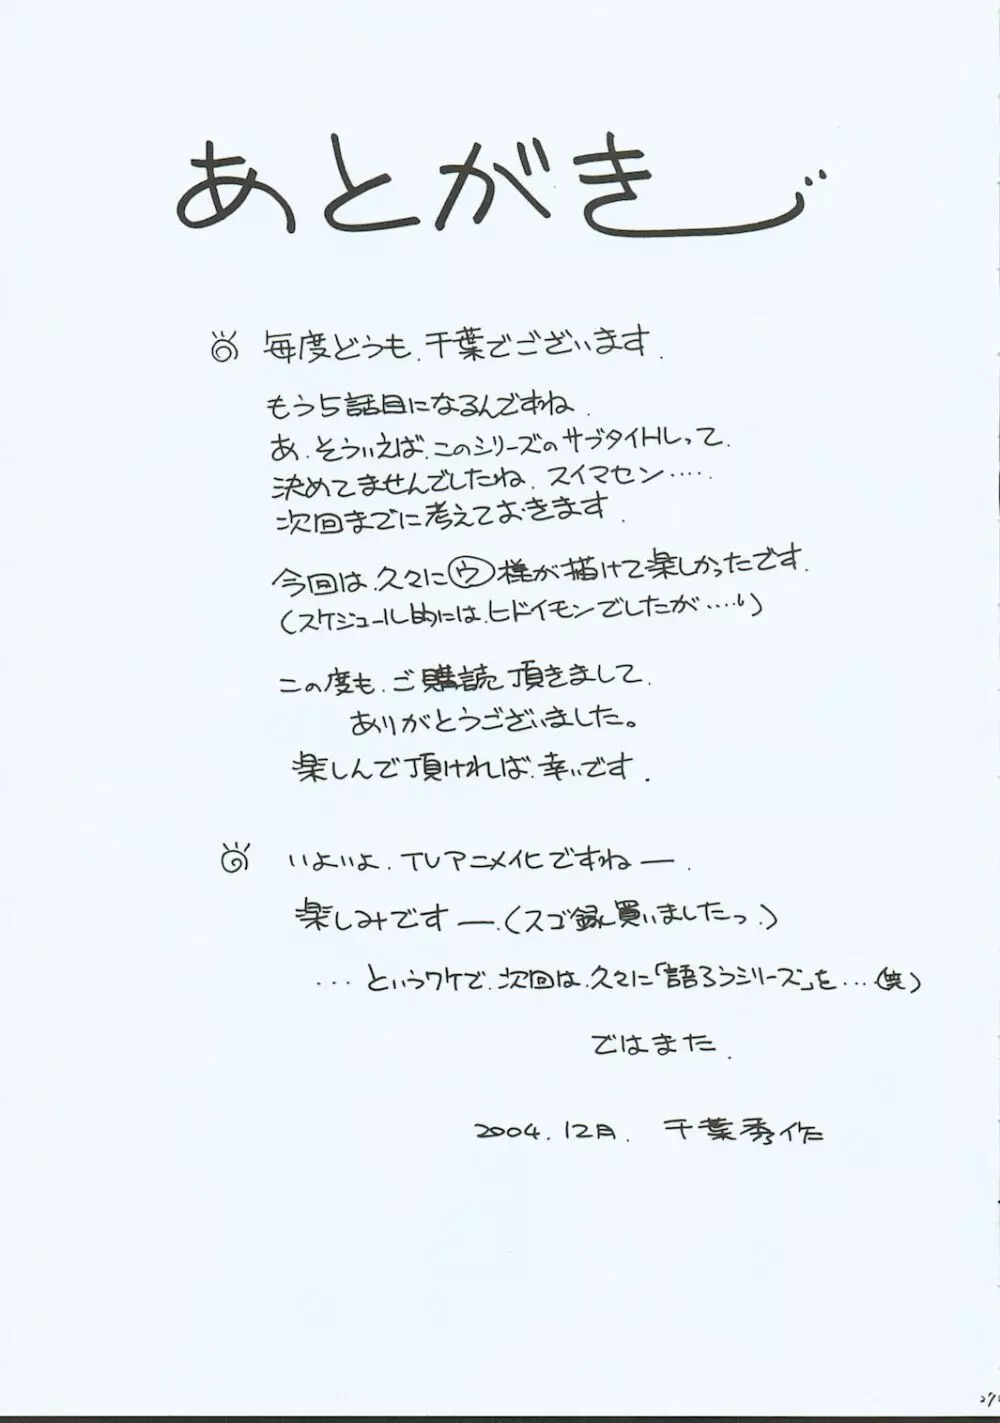 あとがき
毎度どうも、千葉でございます.
もう5話目になるんですね.
あ、そういえば、このシリーズのサブタイトルって、
決めてませんでしたね、スイマセン‥‥.
次回までに考えておきます.
今回は、久々に㋒様が描けて楽しかったです.
(スケジュール的には、ヒドイモンでしたが‥‥。)
この度も、ご購読頂きまして、
ありがとうございました。
楽しんで頂ければ、幸いです.
いよいよ、TVアニメ化ですねー.
楽しみですー.(スゴ録買いましたっ.)
‥‥というワケで、次回は、久々に「語ろうシリーズ」を‥‥(笑)
ではまた.
2004.12月. 千葉秀作